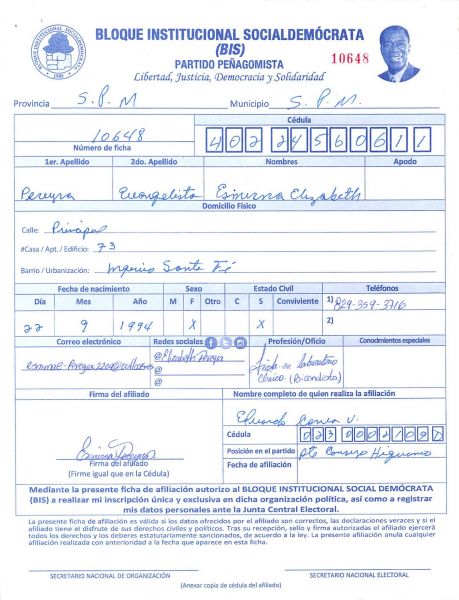 BLOQUE INSTITUCIONAL SOCIALDEMÓCRATA
(BIS)
PARTIDO PEÑAGOMISTA
10648
Libertad, Justicia, Democracia y Solidaridad
Provincia S.P.M Municipio S.P.M.
Cédula
10648
Número de ficha
40224560611
1er. Apellido 2do. Apellido Nombres Apodo
Pereyra Evangelista Esmirna Elizabeth
Domicilio Físico
Calle: Principal
#Casa / Apt. / Edificio: 73
Barrio / Urbanización: Ingenio Santa Fé
Fecha de nacimiento Sexo Estado Civil Teléfonos
Día Mes Año M F Otro C S Conviviente 1) 829-359-3716
22 9 1994 X X 2)
Correo electrónico Redes sociales Profesión/Oficio Conocimientos especiales
@Elizabeth Pereyra
@
@
(Bioanalista)
Firma del afiliado Nombre completo de quien realiza la afiliación
Eduardo
Cédula
Posición en el partido Pte Consejo Higuamo
Firma del afiliado
(Firme igual que en la Cédula)
Fecha de afiliación
Mediante la presente ficha de afiliación autorizo al BLOQUE INSTITUCIONAL SOCIAL DEMÓCRATA
(BIS) a realizar mi inscripción única y exclusiva en dicha organización política, así como a registrar
mis datos personales ante la Junta Central Electoral.
La presente ficha de afiliación es válida si los datos ofrecidos por el afiliado son correctos, las declaraciones veraces y si el
afiliado tiene el disfrute de sus derechos civiles y políticos. Tras su recepción, sello y firma autorizadas el afiliado ejercerá
todos los derechos y los deberes estatutariamente sancionados, de acuerdo a la ley. La presente afiliación anula cualquier
afiliación realizada con anterioridad a la fecha que aparece en esta ficha.
SECRETARIO NACIONAL DE ORGANIZACIÓN SECRETARIO NACIONAL ELECTORAL
(Anexar copia de cédula del afiliado)